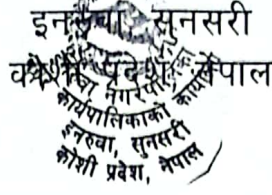 इनरुवा, सुनसरी
कोशी प्रदेश, नेपाल
नगरपालिका
कार्यपालिकाको कार्या
इनरुवा, सुनसरी
कोशी प्रदेश, नेपाल